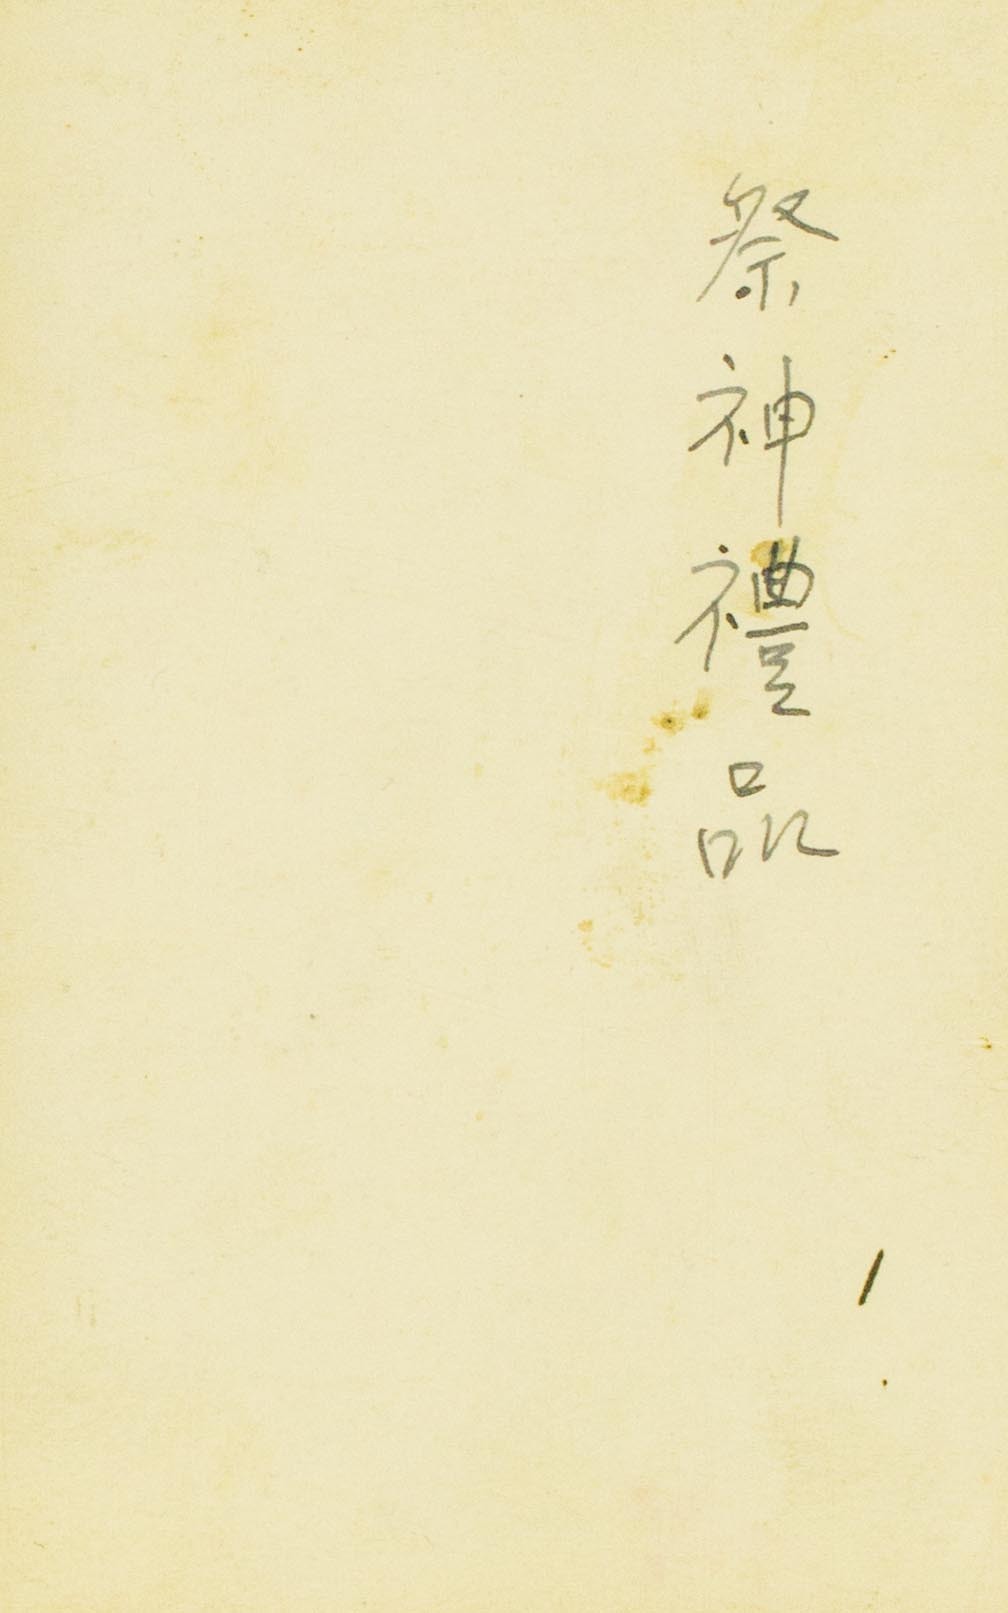 祭神禮品